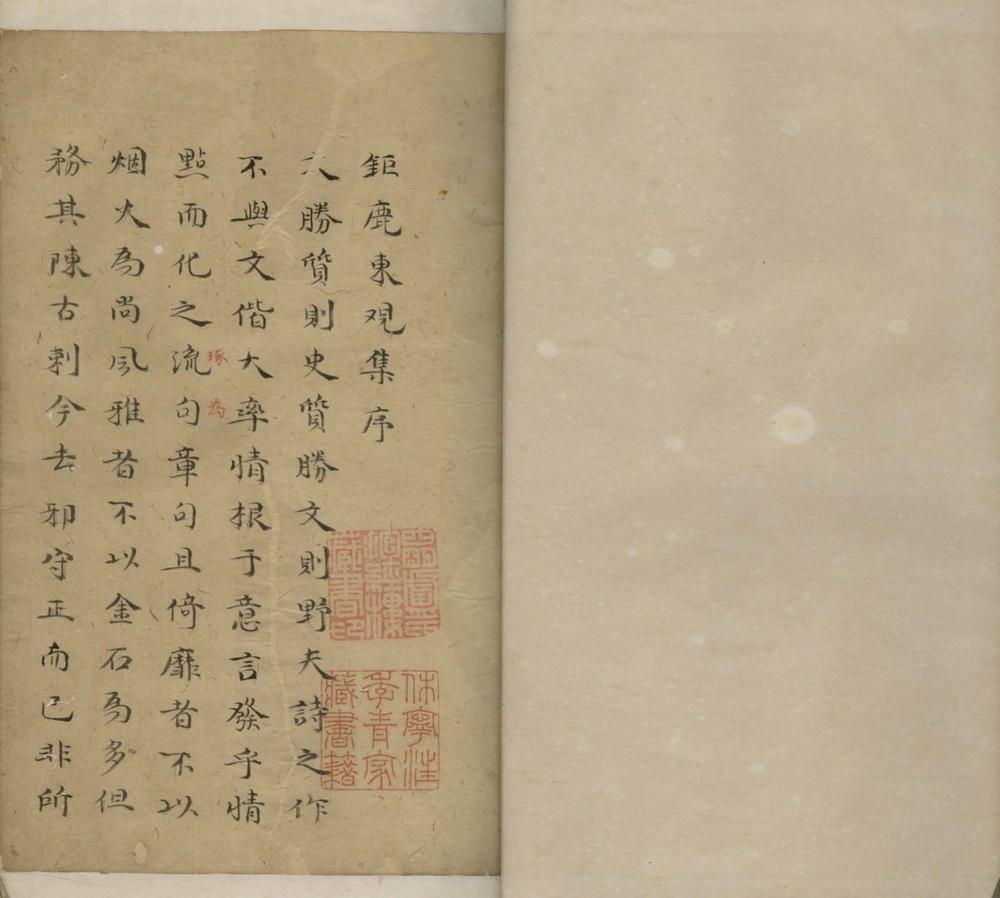 鉅鹿東观集序
文勝質則史質勝文則野夫詩之作
不與文偕大率情根于意言發乎情
點而化之流句章句且倚靡者不以
琢
為
烟火為尚風雅者不以金石為多但
務其陳古刺今去邪守正而已非所
藏書印
休寧汪
季青家
藏書籍